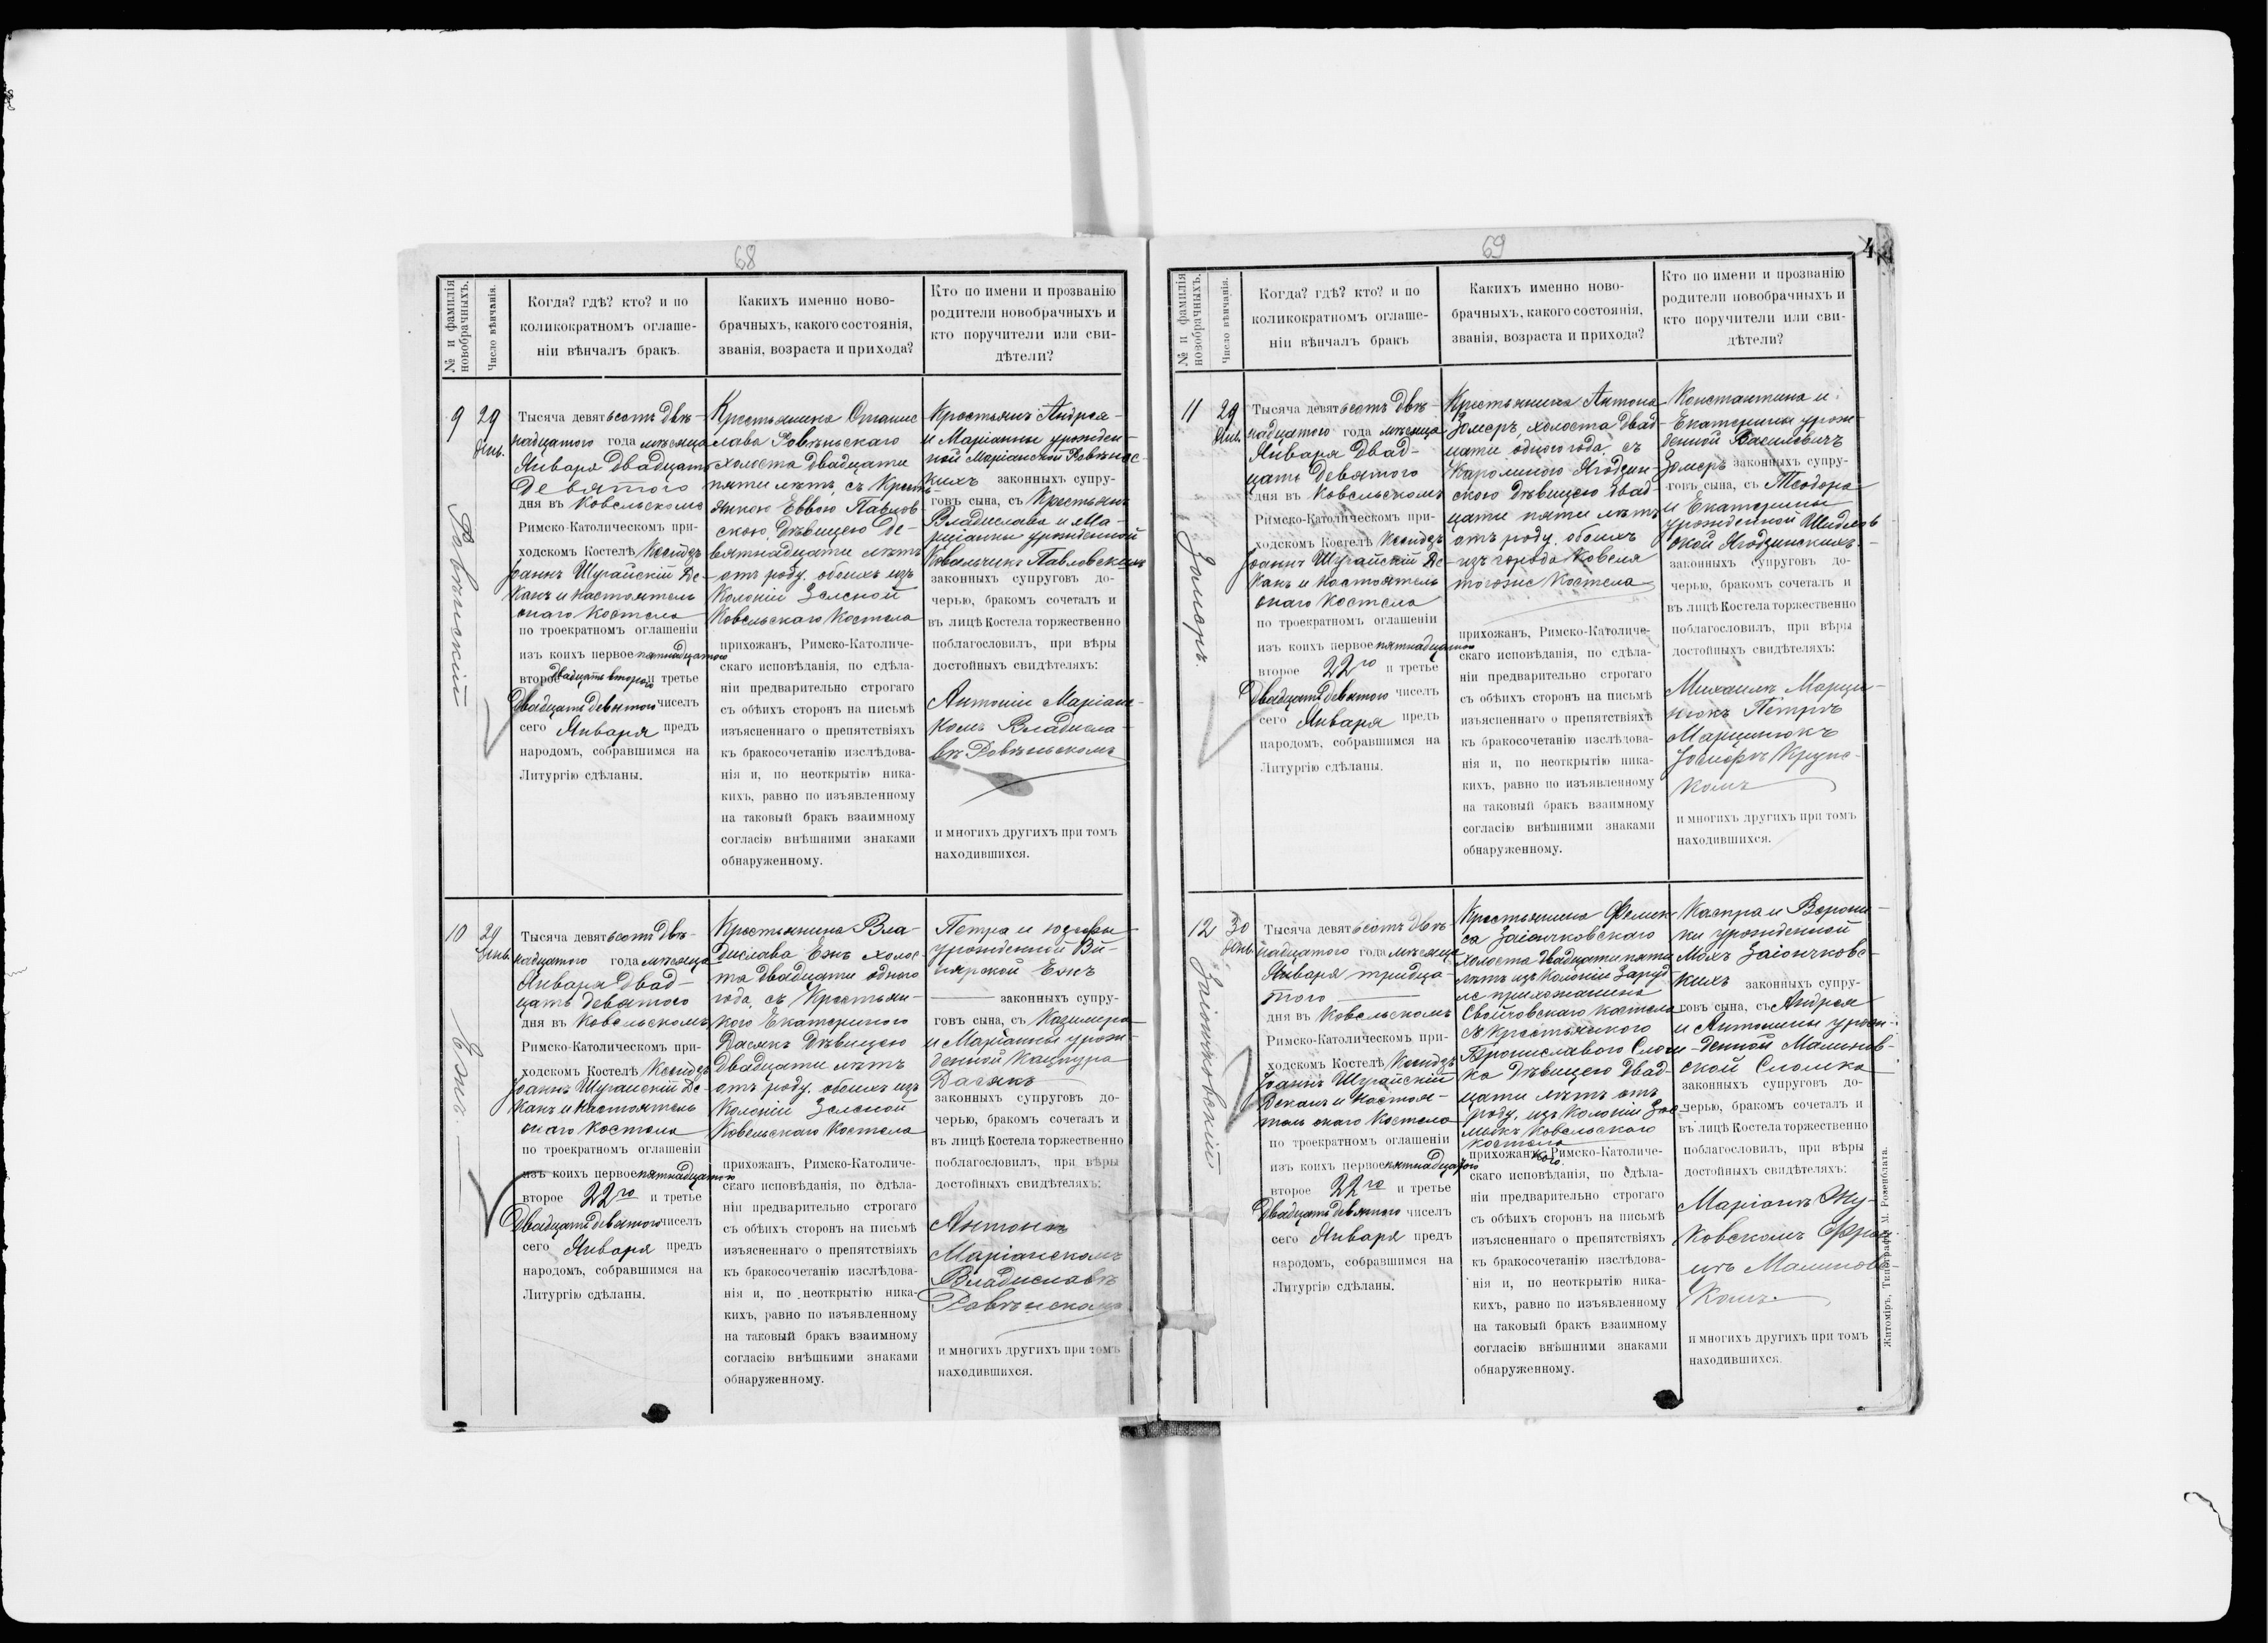 68
№ и фамилія новобрачныхъ.
Число вѣнчанія.
Когда? гдѣ? кто? и по
коликократномъ оглаше-
ніи вѣнчалъ бракъ.
Какихъ именно ново-
брачныхъ, какого состоянія,
званія, возраста и прихода?
Кто по имени и прозванію
родители новобрачныхъ и
кто поручители или сви-
дѣтели?
9
Ровѣнскій
29
Янв.
Тысяча девятьсотъ двѣ-
надцатого года мѣсяца
Января двадцать
девятого
дня въ Ковельскомъ
Римско-Католическомъ при-
ходскомъ Костелѣ Ксендзъ
Іоаннъ Шугайскій Де-
канъ и Настоятель
онаго Костела
по троекратномъ оглашеніи
изъ коихъ первое пятнадцатого
второе двадцать второго и третье
двадцать девятого чиселъ
сего Января предъ
народомъ, собравшимся на
Литургію сдѣланы.
Крестьянина Станис
лава Ровѣньскаго
холоста двадцати
пяти лѣтъ, съ Кресть-
янкою Еввою Павлов-
скою, дѣвицею де-
вятнадцати лѣтъ
отъ роду, обоихъ изъ
Колоніи Зеленой
Ковельскаго Костела
прихожанъ, Римско-Католиче-
скаго исповѣданія, по сдѣла-
ніи предварительно строгаго
съ обѣихъ сторонъ на письмѣ
изъясненнаго о препятствіяхъ
къ бракосочетанію изслѣдова-
нія и, по неоткрытію ника-
кихъ, равно по изъявленному
на таковый бракъ взаимному
согласію внѣшними знаками
обнаруженному.
Крестьянъ Андрея
и Маріанны урожден-
ной Маріанской Ровѣньс-
кихъ законныхъ супру-
говъ сына, съ Крестьянъ
Владислава и Ма-
ріанны урожденной
Ковальчикъ Павловскихъ
законныхъ супруговъ до-
черью, бракомъ сочеталъ и
въ лицѣ Костела торжественно
поблагословилъ, при вѣры
достойныхъ свидѣтеляхъ:
Антоніи Маріанс-
комъ Владисла-
вѣ Ровѣньскомъ
и многихъ другихъ при томъ
находившихся.
10
Езнъ.
29
Янв.
Тысяча девятьсотъ двѣ-
надцатого года мѣсяца
Января двад-
цать девятого
дня въ Ковельскомъ
Римско-Католическомъ при-
ходскомъ Костелѣ Ксендзъ
Іоаннъ Шугайскій Де-
канъ и Настоятель
онаго Костела
по троекратномъ оглашеніи
изъ коихъ первое пятнадцатого
второе 22го и третье
двадцать девятого чиселъ
сего Января предъ
народомъ, собравшимся на
Литургію сдѣланы.
Крестьянина Вла-
дислава Езнъ холос-
та двадцати одного
года, съ Крестьян-
кою Екатериною
Дасякъ дѣвицею
двадцати лѣтъ
отъ роду, обоихъ изъ
Колоніи Зеленой
Ковельскаго Костела
прихожанъ, Римско-Католиче-
скаго исповѣданія, по сдѣла-
ніи предварительно строгаго
съ обѣихъ сторонъ на письмѣ
изъясненнаго о препятствіяхъ
къ бракосочетанію изслѣдова-
нія и, по неоткрытію ника-
кихъ, равно по изъявленному
на таковый бракъ взаимному
согласію внѣшними знаками
обнаруженному.
Петра и Юзефы
урожденной
Езнъ
законныхъ супру-
говъ сына, съ Казимира
и Маріанны урож-
денной Кацпура
Дасякъ
законныхъ супруговъ до-
черью, бракомъ сочеталъ и
въ лицѣ Костела торжественно
поблагословилъ, при вѣры
достойныхъ свидѣтеляхъ:
Антонъ
Маріанскомъ
Владиславѣ
Ровѣнскомъ
и многихъ другихъ при томъ
находившихся.
69
4
№ и фамилія новобрачныхъ.
Число вѣнчанія.
Когда? гдѣ? кто? и по
коликократномъ оглаше-
ніи вѣнчалъ бракъ
Какихъ именно ново-
брачныхъ, какого состоянія,
званія, возраста и прихода?
Кто по имени и прозванію
родители новобрачныхъ и
кто поручители или сви-
дѣтели?
11
Зомеръ.
29
Янв.
Тысяча девятьсотъ двѣ-
надцатого года мѣсяца
Января двад-
цать девятого
дня въ Ковельскомъ
Римско-Католическомъ при-
ходскомъ Костелѣ Ксендзъ
Іоаннъ Шугайскій Де-
канъ и Настоятель
онаго Костела
по троекратномъ оглашеніи
изъ коихъ первое пятнадцатого
второе 22го и третье
двадцать девятого чиселъ
сего Января предъ
народомъ, собравшимся на
Литургію сдѣланы.
Крестьянина Антона
Зомеръ, холоста двад-
цати одного года, съ
Каролиною Ягодзин-
скою дѣвицею двад-
цати пяти лѣтъ
отъ роду, обоихъ
изъ города Ковеля
тогоже Костела
прихожанъ, Римско-Католиче-
скаго исповѣданія, по сдѣла-
ніи предварительно строгаго
съ обѣихъ сторонъ на письмѣ
изъясненнаго о препятствіяхъ
къ бракосочетанію изслѣдова-
нія и, по неоткрытію ника-
кихъ, равно по изъявленному
на таковый бракъ взаимному
согласію внѣшними знаками
обнаруженному.
Константина и
Екатерины урож-
денной Василовичъ
Зомеръ законныхъ супру-
говъ сына, съ Теодора
и Екатерины
урожденной Шидлов
ской Ягодзинскихъ.
законныхъ супруговъ до-
черью, бракомъ сочеталъ и
въ лицѣ Костела торжественно
поблагословилъ, при вѣры
достойныхъ свидѣтеляхъ:
Михаилъ Марци-
нюкъ Петръ
Марцинюкъ
Іосифъ Крупс-
комъ
и многихъ другихъ при томъ
находившихся.
12
Заіончковскій
30
Янв.
Тысяча девятьсотъ двѣ-
надцатого года мѣсяца
Января тридца-
того
дня въ Ковельскомъ
Римско-Католическомъ при-
ходскомъ Костелѣ Ксендзъ
Іоаннъ Шугайскій
Деканъ и Настоя-
тель онаго Костела
по троекратномъ оглашеніи
изъ коихъ первое пятнадцатого
второе 22го и третье
двадцать девятого чиселъ
сего Января предъ
народомъ, собравшимся на
Литургію сдѣланы.
Крестьянина Фелик
са Заіончковскаго
холоста двадцати пяти
лѣтъ изъ Колоніи Заруд-
ле прихожанина
Свойчовскаго костела
съ Крестьянкою
Брониславою Сломи-
ка дѣвицею двад-
цати лѣтъ отъ
роду, изъ Колоніи
Ковельскаго
костела
прихожанъ, Римско-Католиче-
скаго исповѣданія, по сдѣла-
ніи предварительно строгаго
съ обѣихъ сторонъ на письмѣ
изъясненнаго о препятствіяхъ
къ бракосочетанію изслѣдова-
нія и, по неоткрытію ника-
кихъ, равно по изъявленному
на таковый бракъ взаимному
согласію внѣшними знаками
обнаруженному.
Каспра и Верони-
ки урожденной
Мохъ Заіончковс-
кихъ законныхъ супру-
говъ сына, съ Андрея
и Антонины урож-
денной Малинов-
ской Сломка
законныхъ супруговъ до-
черью, бракомъ сочеталъ и
въ лицѣ Костела торжественно
поблагословилъ, при вѣры
достойныхъ свидѣтеляхъ:
Маріанъ Жу-
ковскомъ Фран-
цъ Малиновс-
комъ.
и многихъ другихъ при томъ
находившихся.
Житоміръ, Типографія М. Розенблата.